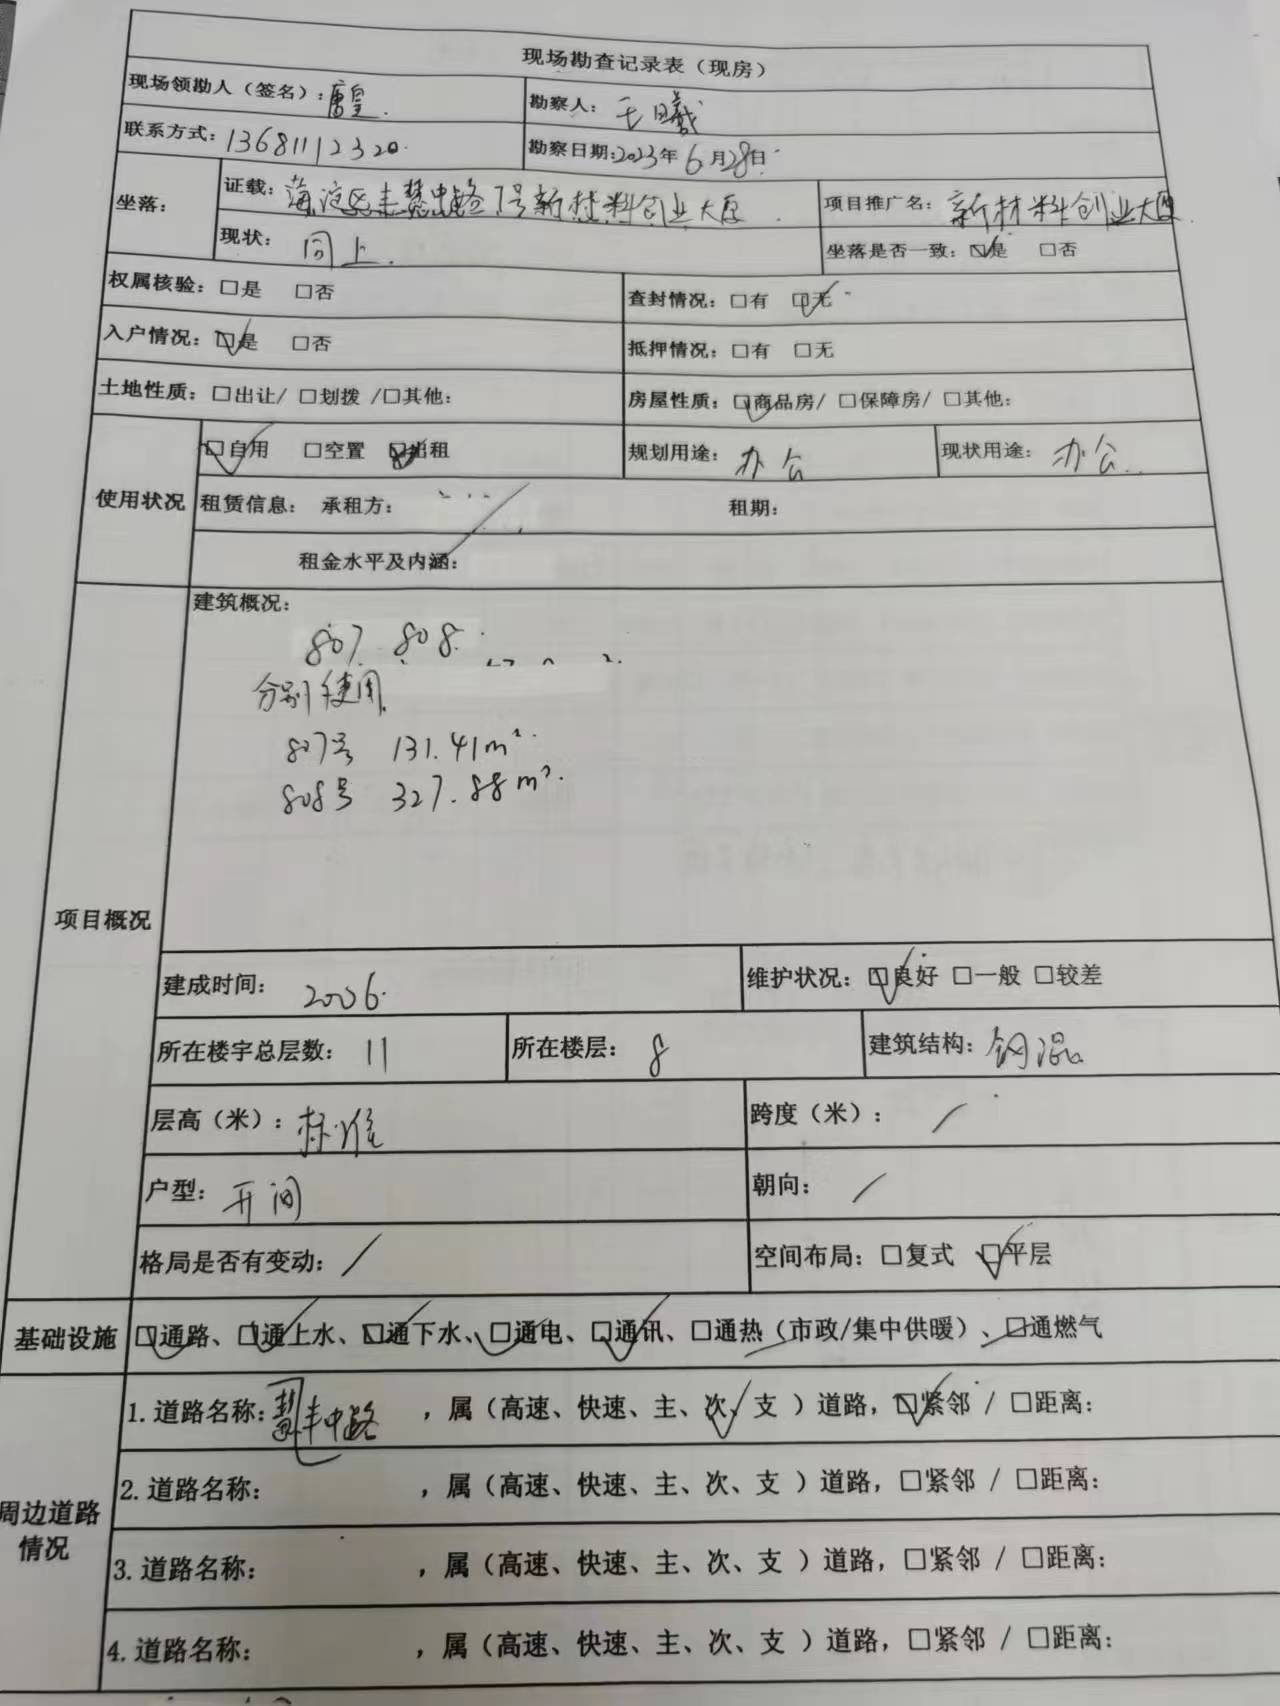 现场勘查记录表（现房）
现场领勘人（签名）：唐皇 勘察人：王曦
联系方式：13681112320 勘察日期：2023年6月28日
坐落： 证载：海淀区丰慧中路7号新材料创业大厦 项目推广名：新材料创业大厦
现状：同上 坐落是否一致：☑是 □否
权属核验：□是 □否 查封情况：□有 ☑无
入户情况：☑是 □否 抵押情况：□有 □无
土地性质：□出让/ □划拨 /□其他： 房屋性质：☑商品房/ □保障房/ □其他：
使用状况 ☑自用 □空置 □出租 规划用途：办公 现状用途：办公
租赁信息： 承租方： 租期：
租金水平及内涵：
项目概况 建筑概况：
807. 808.
分别使用
807号 131.41m²
808号 327.88m²
建成时间：2006. 维护状况：☑良好 □一般 □较差
所在楼宇总层数：11 所在楼层：8 建筑结构：钢混
层高（米）：标准 跨度（米）：/
户型：开间 朝向：/
格局是否有变动：/ 空间布局：□复式 ☑平层
基础设施 ☑通路、☑通上水、☑通下水、☑通电、☑通讯、□通热（市政/集中供暖）、□通燃气
周边道路情况 1.道路名称：丰中路，属（高速、快速、主、次、支 ）道路，☑紧邻 / □距离：
2.道路名称： ，属（高速、快速、主、次、支 ）道路，□紧邻 / □距离：
3.道路名称： ，属（高速、快速、主、次、支 ）道路，□紧邻 / □距离：
4.道路名称： ，属（高速、快速、主、次、支 ）道路，□紧邻 / □距离：